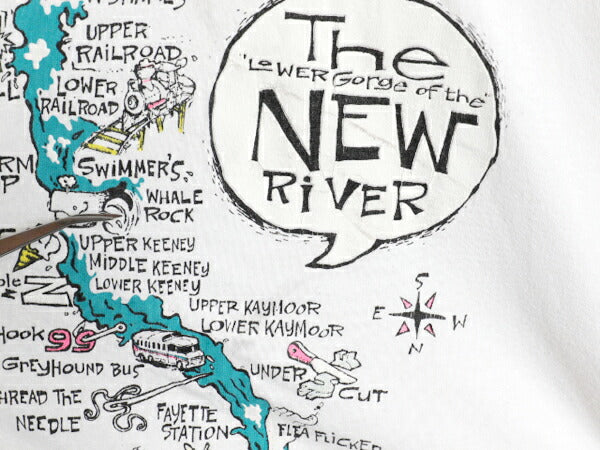 The
"LOWER Gorge of the"
NEW
RIVER
UPPER
RAILROAD
LOWER
RAILROAD
SWIMMER'S
WHALE
ROCK
UPPER KEENEY
MIDDLE KEENEY
LOWER KEENEY
UPPER KAYMOOR
LOWER KAYMOOR
S
E W
N
Hook 99
GREYHOUND BUS
UNDER
CUT
THREAD THE
NEEDLE
FAYETTE
STATION
FLEA FLICKER